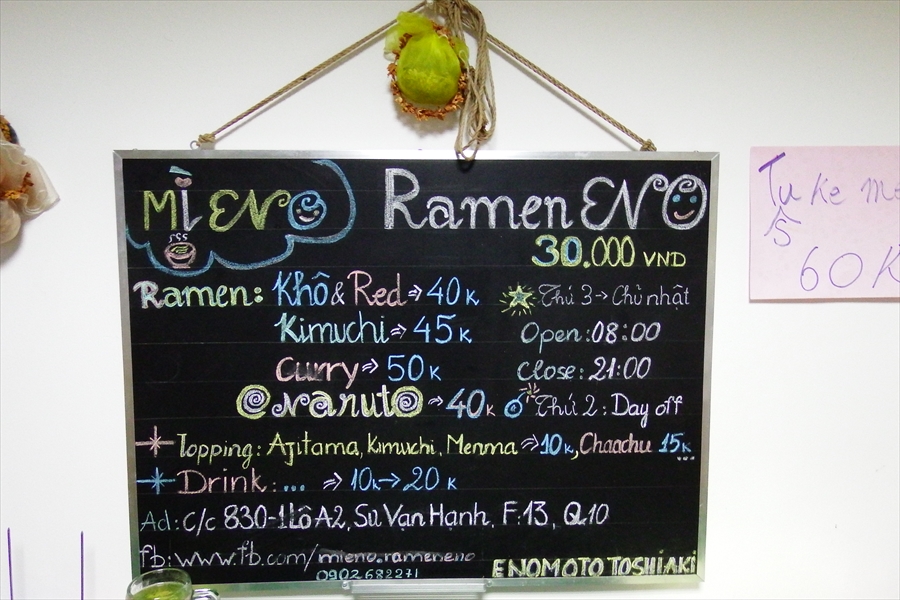 MÌ ENO
Ramen ENO
30.000 VND
Ramen: Khô & Red → 40 K
Kimuchi → 45 K
Curry → 50 K
Naruto → 40 K
Thứ 3 → Chủ nhật
Open: 08:00
Close: 21:00
Thứ 2: Day off
Topping: Ajitama, Kimuchi, Menma → 10 K, Chaachu 15 K
Drink: ... → 10K → 20 K
Ad: C/c 830-1 Lô A2, Sư Vạn Hạnh, F.13, Q10
fb: www.fb.com/mieno.rameneno
0902682271
ENOMOTO TOSHIAKI
60K